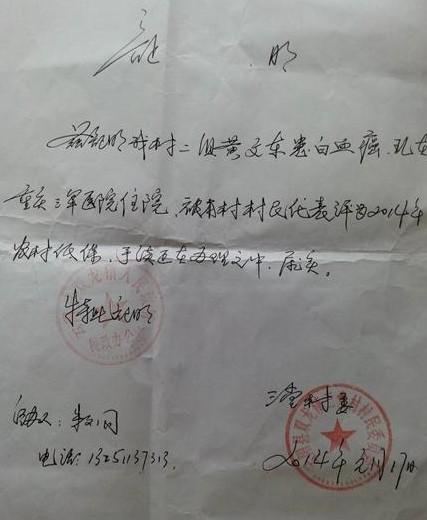 证 明
兹证明我村二组黄文东患白血癌.现在
重庆三军医院住院,被本村村民代表评为2014年
农村低保,手续正在办理之中.属实。
特此证明
三堂村委
经办人:
电话:13251137313.
2014年元月17日